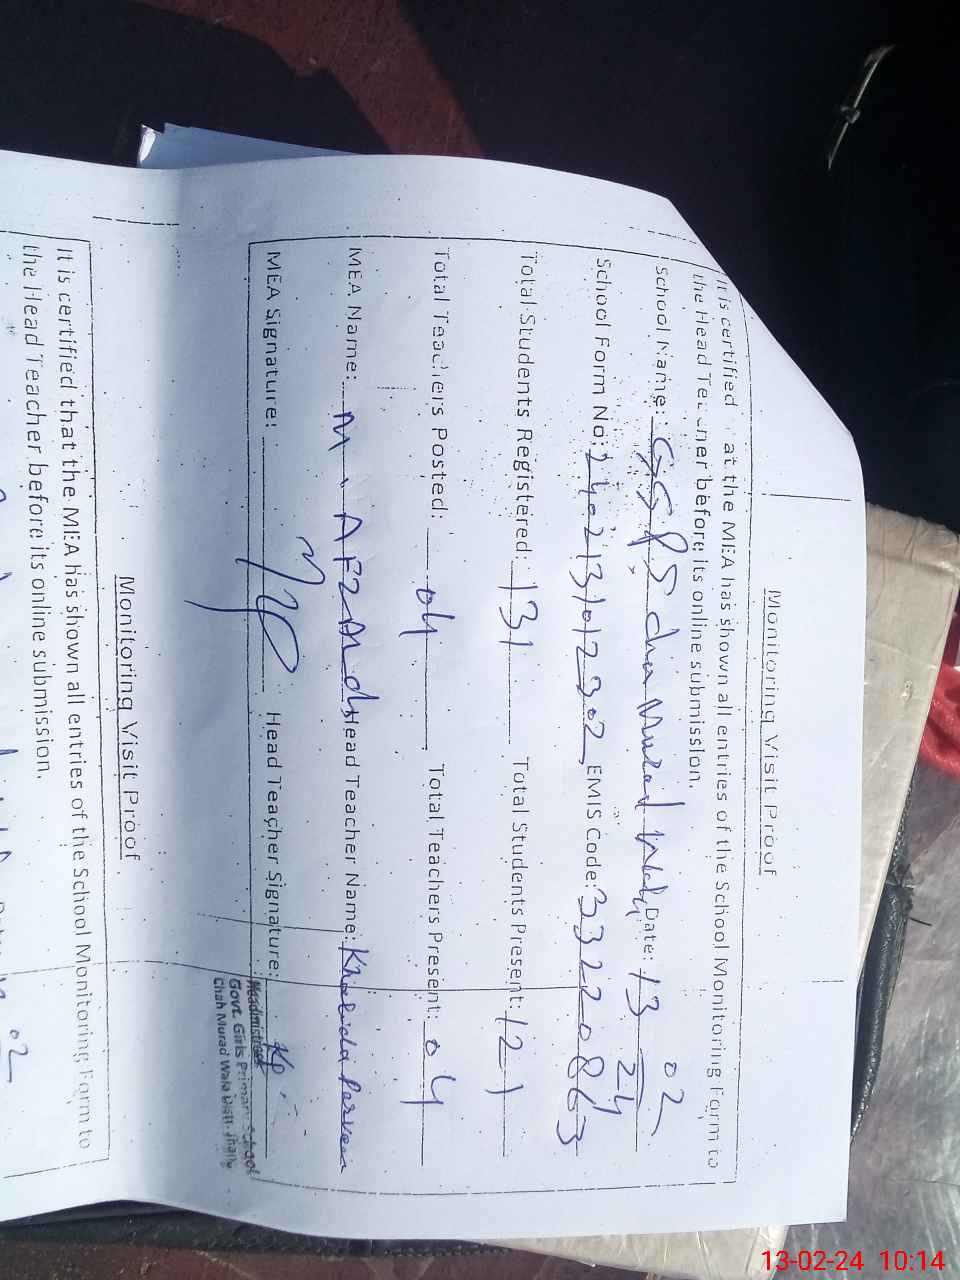 Monitoring Visit Proof
It is certified at the MEA has shown all entries of the School Monitoring Form to
the Head Teacher before its online submission.
School Name: GGPS chah Murad wala Date: 13 02 24
School Form No: 2402131012302 EMIS Code: 33220863
Total Students Registered: 131 Total Students Present: 121
Total Teachers Posted: 04 Total Teachers Present: 04
MEA Name: M. AFZAL Head Teacher Name: Khalida Parveen
MEA Signature: Head Teacher Signature: KP
Headmistress
Govt. Girls Primary School
Chah Murad Wala Distt. Jhang
Monitoring Visit Proof
It is certified that the MEA has shown all entries of the School Monitoring Form to
the Head Teacher before its online submission.
02
13-02-24 10:14